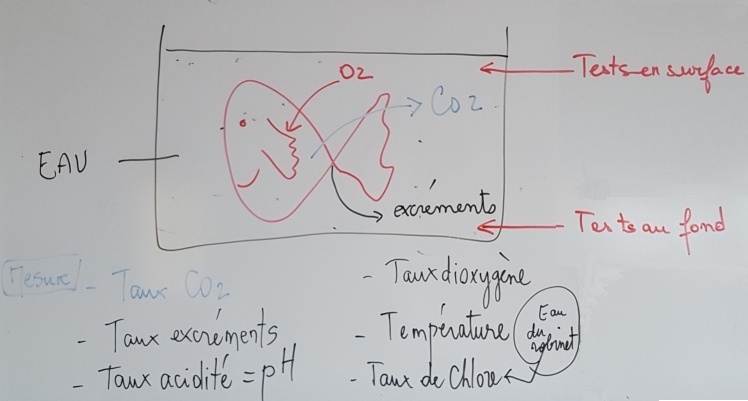 O2
Tests en surface
CO2
EAU
excréments
Tests au fond
Mesure - Taux CO2
- Taux dioxygène
- Taux excréments
- Température
Eau
du
robinet
- Taux acidité = pH
- Taux de Chlore